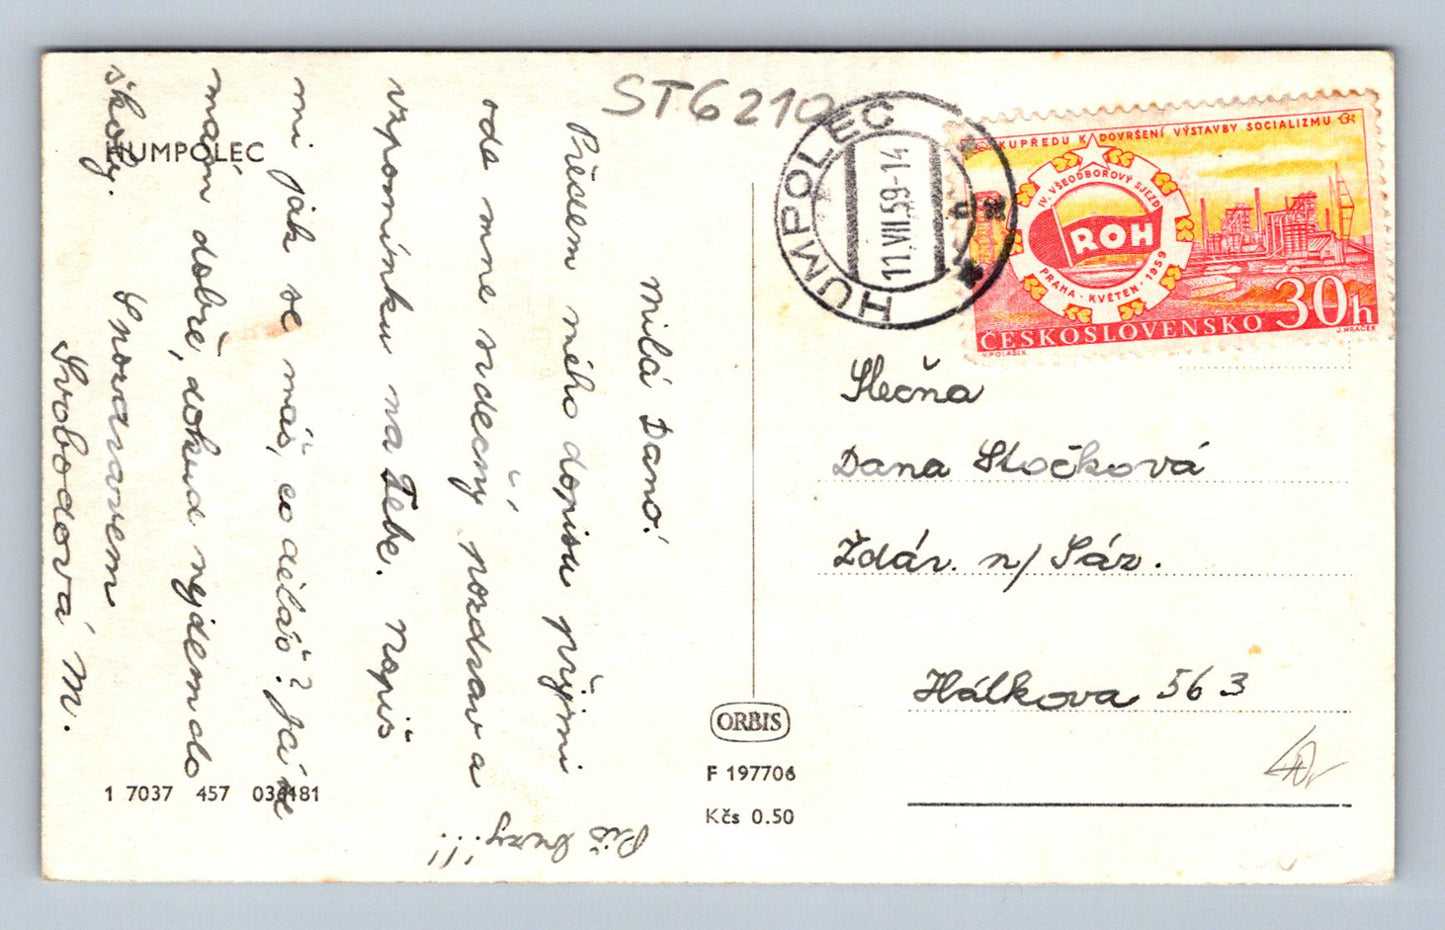 ST6210
HUMPOLEC
Milá Dano!
Přesem mého dopisu přijmi
ode mne srdečný pozdrav a
vzpomínku na Tebe. Napiš
mi jak se máš, co děláš? Já se
mám dobře, dokud nejdem do
školy.
S pozdravem
Svobodová M.
Piš brzy!!!
1 7037 457 034181
ORBIS
F 197706
Kčs 0.50
HUMPOLEC
11.VII.59-14
KUPŘEDU K DOVRŠENÍ VÝSTAVBY SOCIALIZMU
IV. VŠEODBOROVÝ SJEZD
ROH
PRAHA · KVĚTEN · 1959
30h
ČESKOSLOVENSKO
V.POLÁŠEK
J.MRÁČEK
Slečna
Dana Stočková
Ždár. n/ Sáz.
Hálkova 563